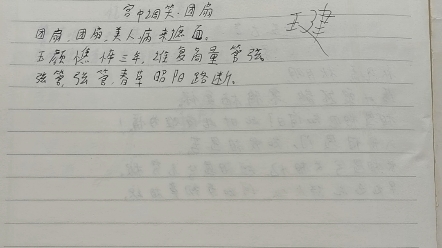 宫中调笑·团扇
王建
团扇,团扇,美人病来遮面。
玉颜憔悴三年,谁复商量管弦。
弦管,弦管,春草昭阳路断。